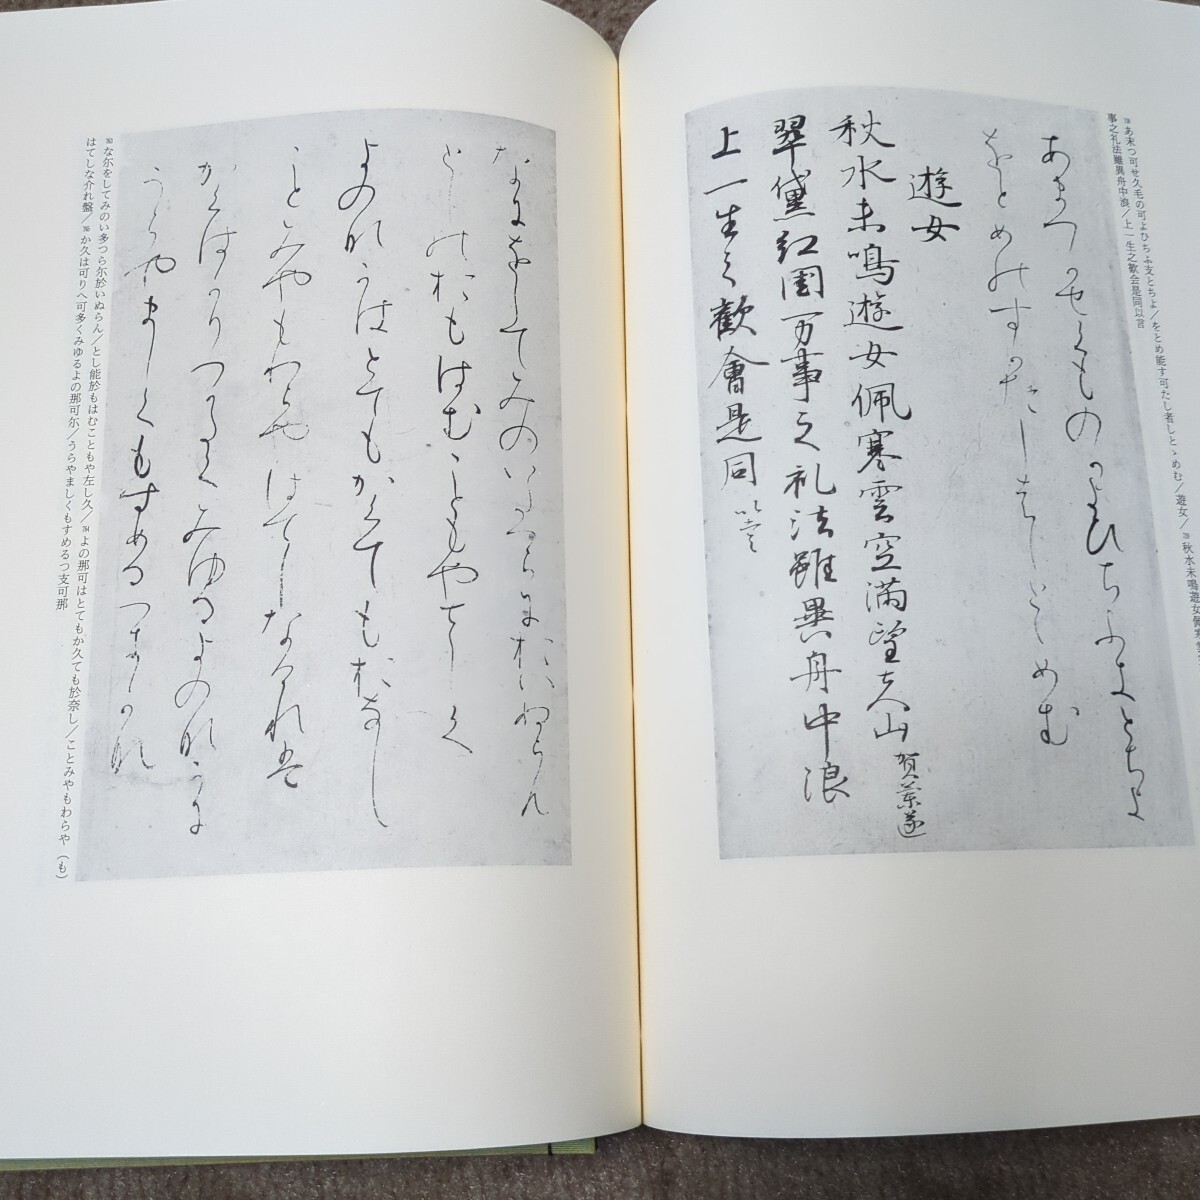 あ末つ可せ久毛の可よひちふ支とちよ/をとめ能す可たし者しとゝめむ/遊女/秋水未鳴遊女佩寒雲
事之礼法雖異舟中浪/上一生之歓会是同以言
あまつかせくものかよひちふきとちよ
をとめのすかたしはしとゝめむ
遊女
秋水未鳴遊女佩寒雲空満望夫山 賀蘭遂
翠黛紅閨万事之礼法雖異舟中浪
上一生之歡會是同 以言
なにをしてみのいたつらにおいぬらん
としのおもはむこともやさしく
よのなかはとてもかくてもおなし
ことみやもわらやはてしなけれは
かくはかりへかたくみゆるよのなかに
うらやましくもすめるつきかな
な尓をしてみのい多つら尓於いぬらん/とし能於もはむこともや左し久/よの那可はとてもか久ても於奈し/ことみやもわらや(も)
はてしな介れ盤/か久は可りへ可多くみゆるよの那可尓/うらやましくもすめるつ支可那